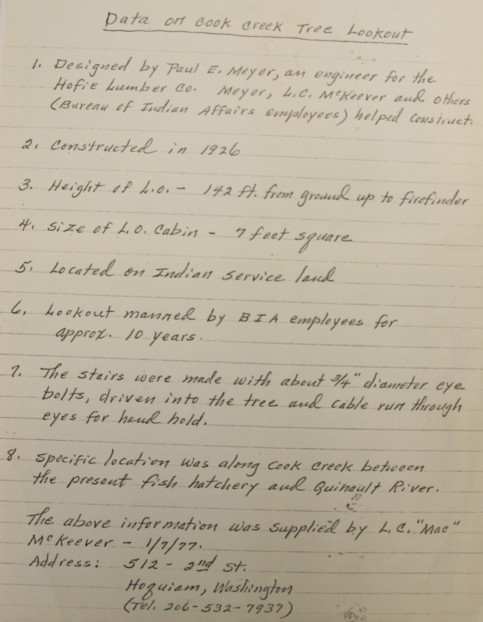 Data on Cook Creek Tree Lookout
1. Designed by Paul E. Meyer, an engineer for the
Hofie Lumber Co. Meyer, L.C. McKeever and others
(Bureau of Indian Affairs employees) helped construct.
2. Constructed in 1926
3. Height of L.O. - 142 ft. from ground up to firefinder
4. Size of L.O. Cabin - 7 feet square
5. Located on Indian Service land
6. Lookout manned by BIA employees for
approx. 10 years.
7. The stairs were made with about 3/4" diameter eye
bolts, driven into the tree and cable run through
eyes for hand hold.
8. Specific location was along Cook Creek between
the present fish hatchery and Quinault River.
The above information was supplied by L.C. "Mac"
McKeever - 1/7/77.
Address: 512 - 2nd St.
Hoquiam, Washington
(Tel. 206-532-7937)